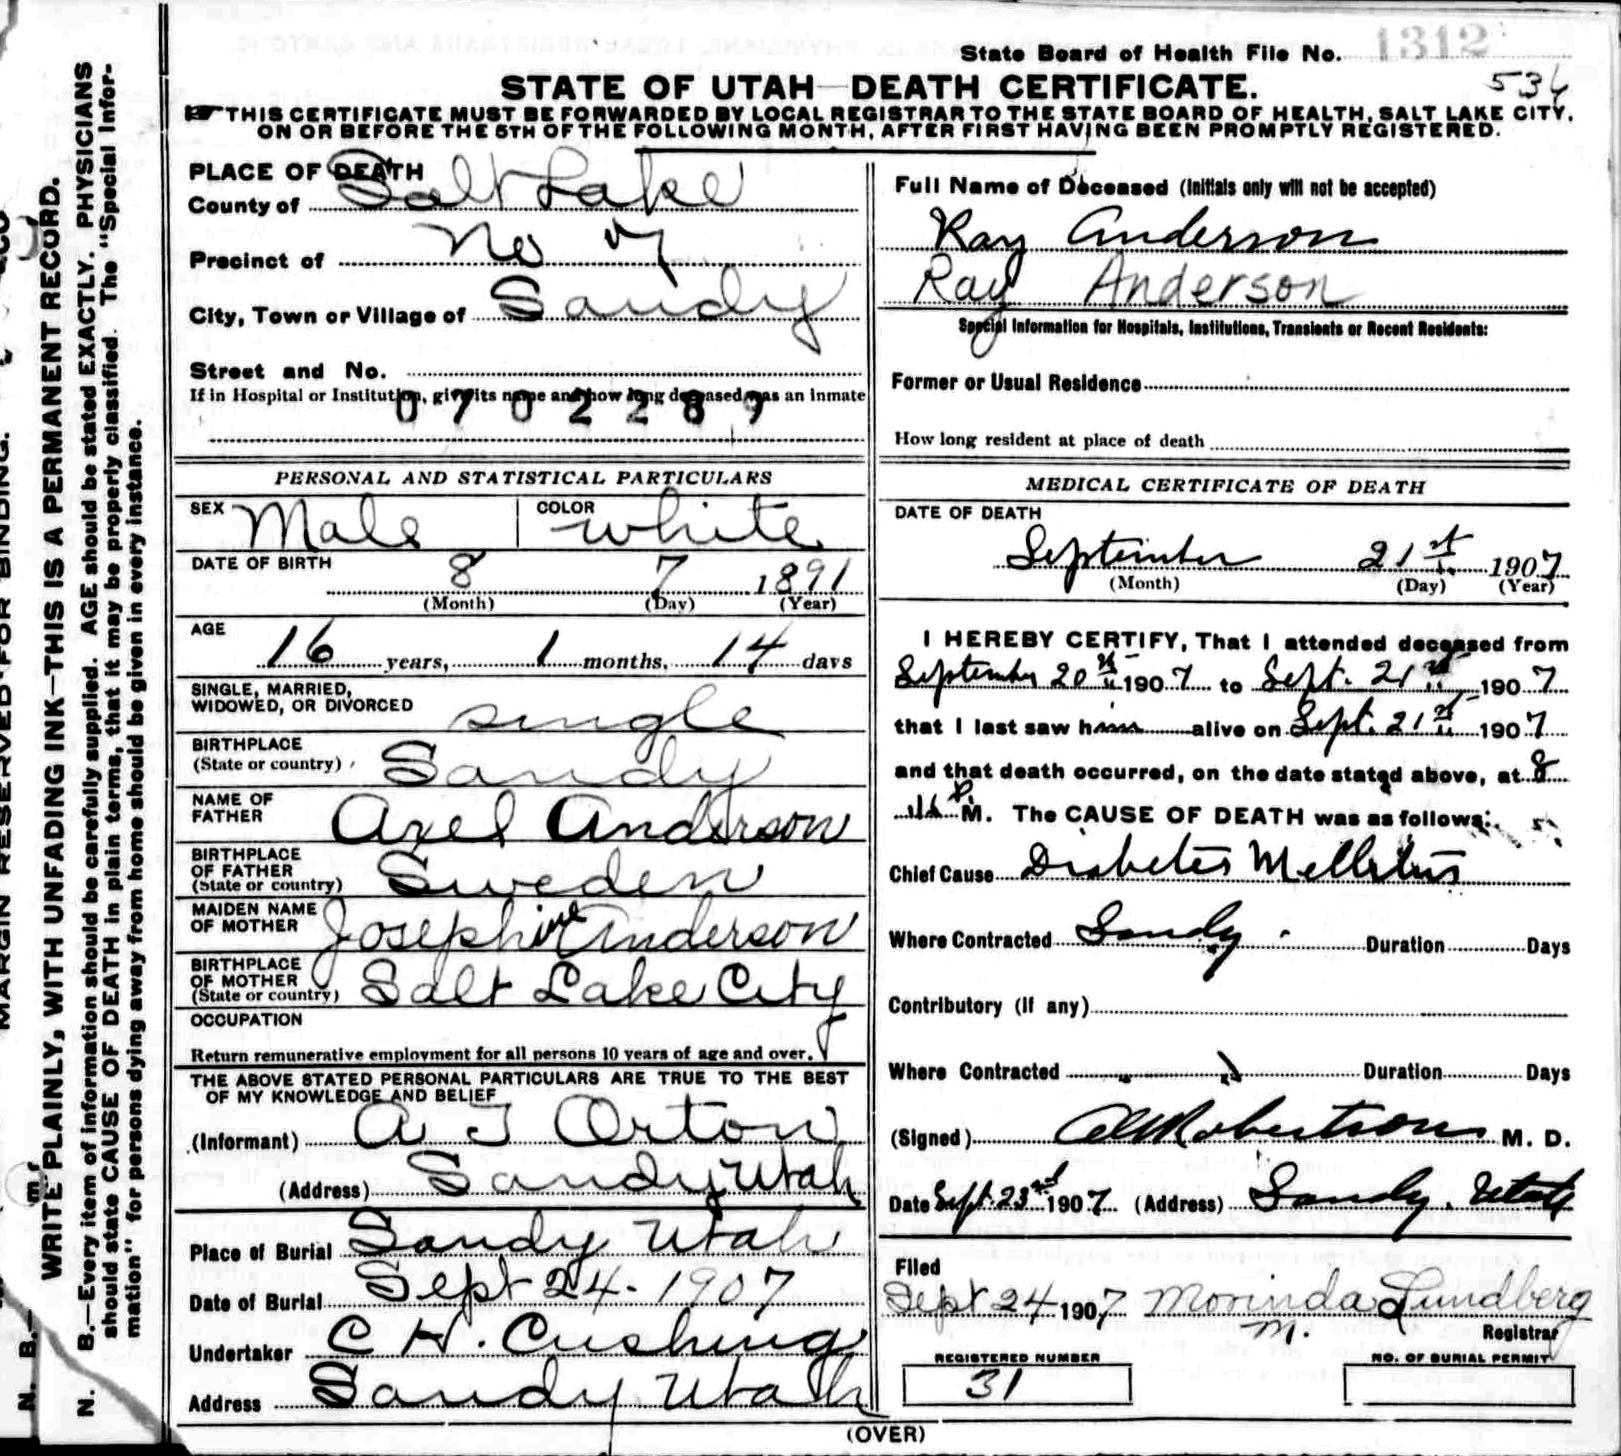 State Board of Health File No. 1312
536
STATE OF UTAH—DEATH CERTIFICATE.
THIS CERTIFICATE MUST BE FORWARDED BY LOCAL REGISTRAR TO THE STATE BOARD OF HEALTH, SALT LAKE CITY,
ON OR BEFORE THE 5TH OF THE FOLLOWING MONTH, AFTER FIRST HAVING BEEN PROMPTLY REGISTERED.
MARGIN RESERVED FOR BINDING.
WRITE PLAINLY, WITH UNFADING INK—THIS IS A PERMANENT RECORD.
N. B.—Every item of information should be carefully supplied. AGE should be stated EXACTLY. PHYSICIANS
should state CAUSE OF DEATH in plain terms, that it may be properly classified. The "Special Infor-
mation" for persons dying away from home should be given in every instance.
N. B.—
PLACE OF DEATH
County of Salt Lake
Precinct of No 7
City, Town or Village of Sandy
Street and No.
If in Hospital or Institution, give its name and how long deceased was an inmate
0702289
PERSONAL AND STATISTICAL PARTICULARS
SEX Male COLOR white
DATE OF BIRTH 8 7 1891
(Month) (Day) (Year)
AGE 16 years, 1 months, 14 days
SINGLE, MARRIED,
WIDOWED, OR DIVORCED single
BIRTHPLACE
(State or country) Sandy
NAME OF
FATHER Axel Anderson
BIRTHPLACE
OF FATHER
(State or country) Sweden
MAIDEN NAME
OF MOTHER Josephine Anderson
BIRTHPLACE
OF MOTHER
(State or country) Salt Lake City
OCCUPATION
Return remunerative employment for all persons 10 years of age and over.
THE ABOVE STATED PERSONAL PARTICULARS ARE TRUE TO THE BEST
OF MY KNOWLEDGE AND BELIEF
(Informant) A J Orton
(Address) Sandy Utah
Place of Burial Sandy Utah
Date of Burial Sept 24. 1907
Undertaker C H. Cushing
Address Sandy Utah
Full Name of Deceased (Initials only will not be accepted)
Ray Anderson
Ray Anderson
Special Information for Hospitals, Institutions, Transients or Recent Residents:
Former or Usual Residence
How long resident at place of death
MEDICAL CERTIFICATE OF DEATH
DATE OF DEATH
September 21st 1907
(Month) (Day) (Year)
I HEREBY CERTIFY, That I attended deceased from
September 20th 1907 to Sept. 21st 1907
that I last saw him alive on Sept. 21st 1907
and that death occurred, on the date stated above, at 8
P. M. The CAUSE OF DEATH was as follows:
Chief Cause Diabetes Mellitus
Where Contracted Sandy. Duration Days
Contributory (if any)
Where Contracted Duration Days
(Signed) Robertson M. D.
Date Sept. 23rd 1907 (Address) Sandy, Utah
Filed
Sept 24 1907 Morinda Lundberg
M. Registrar
REGISTERED NUMBER
31
NO. OF BURIAL PERMIT
(OVER)